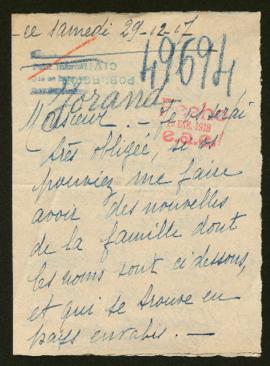 ce samedi 29-12-17
49694
POBLACION
CIVIL
Morand
1918
Monsieur. - Je serai
très obligée, si
pouviez me faire
avoir des nouvelles
de la famille dont
les noms sont ci dessous,
et qui se trouve en
pays envahis. -